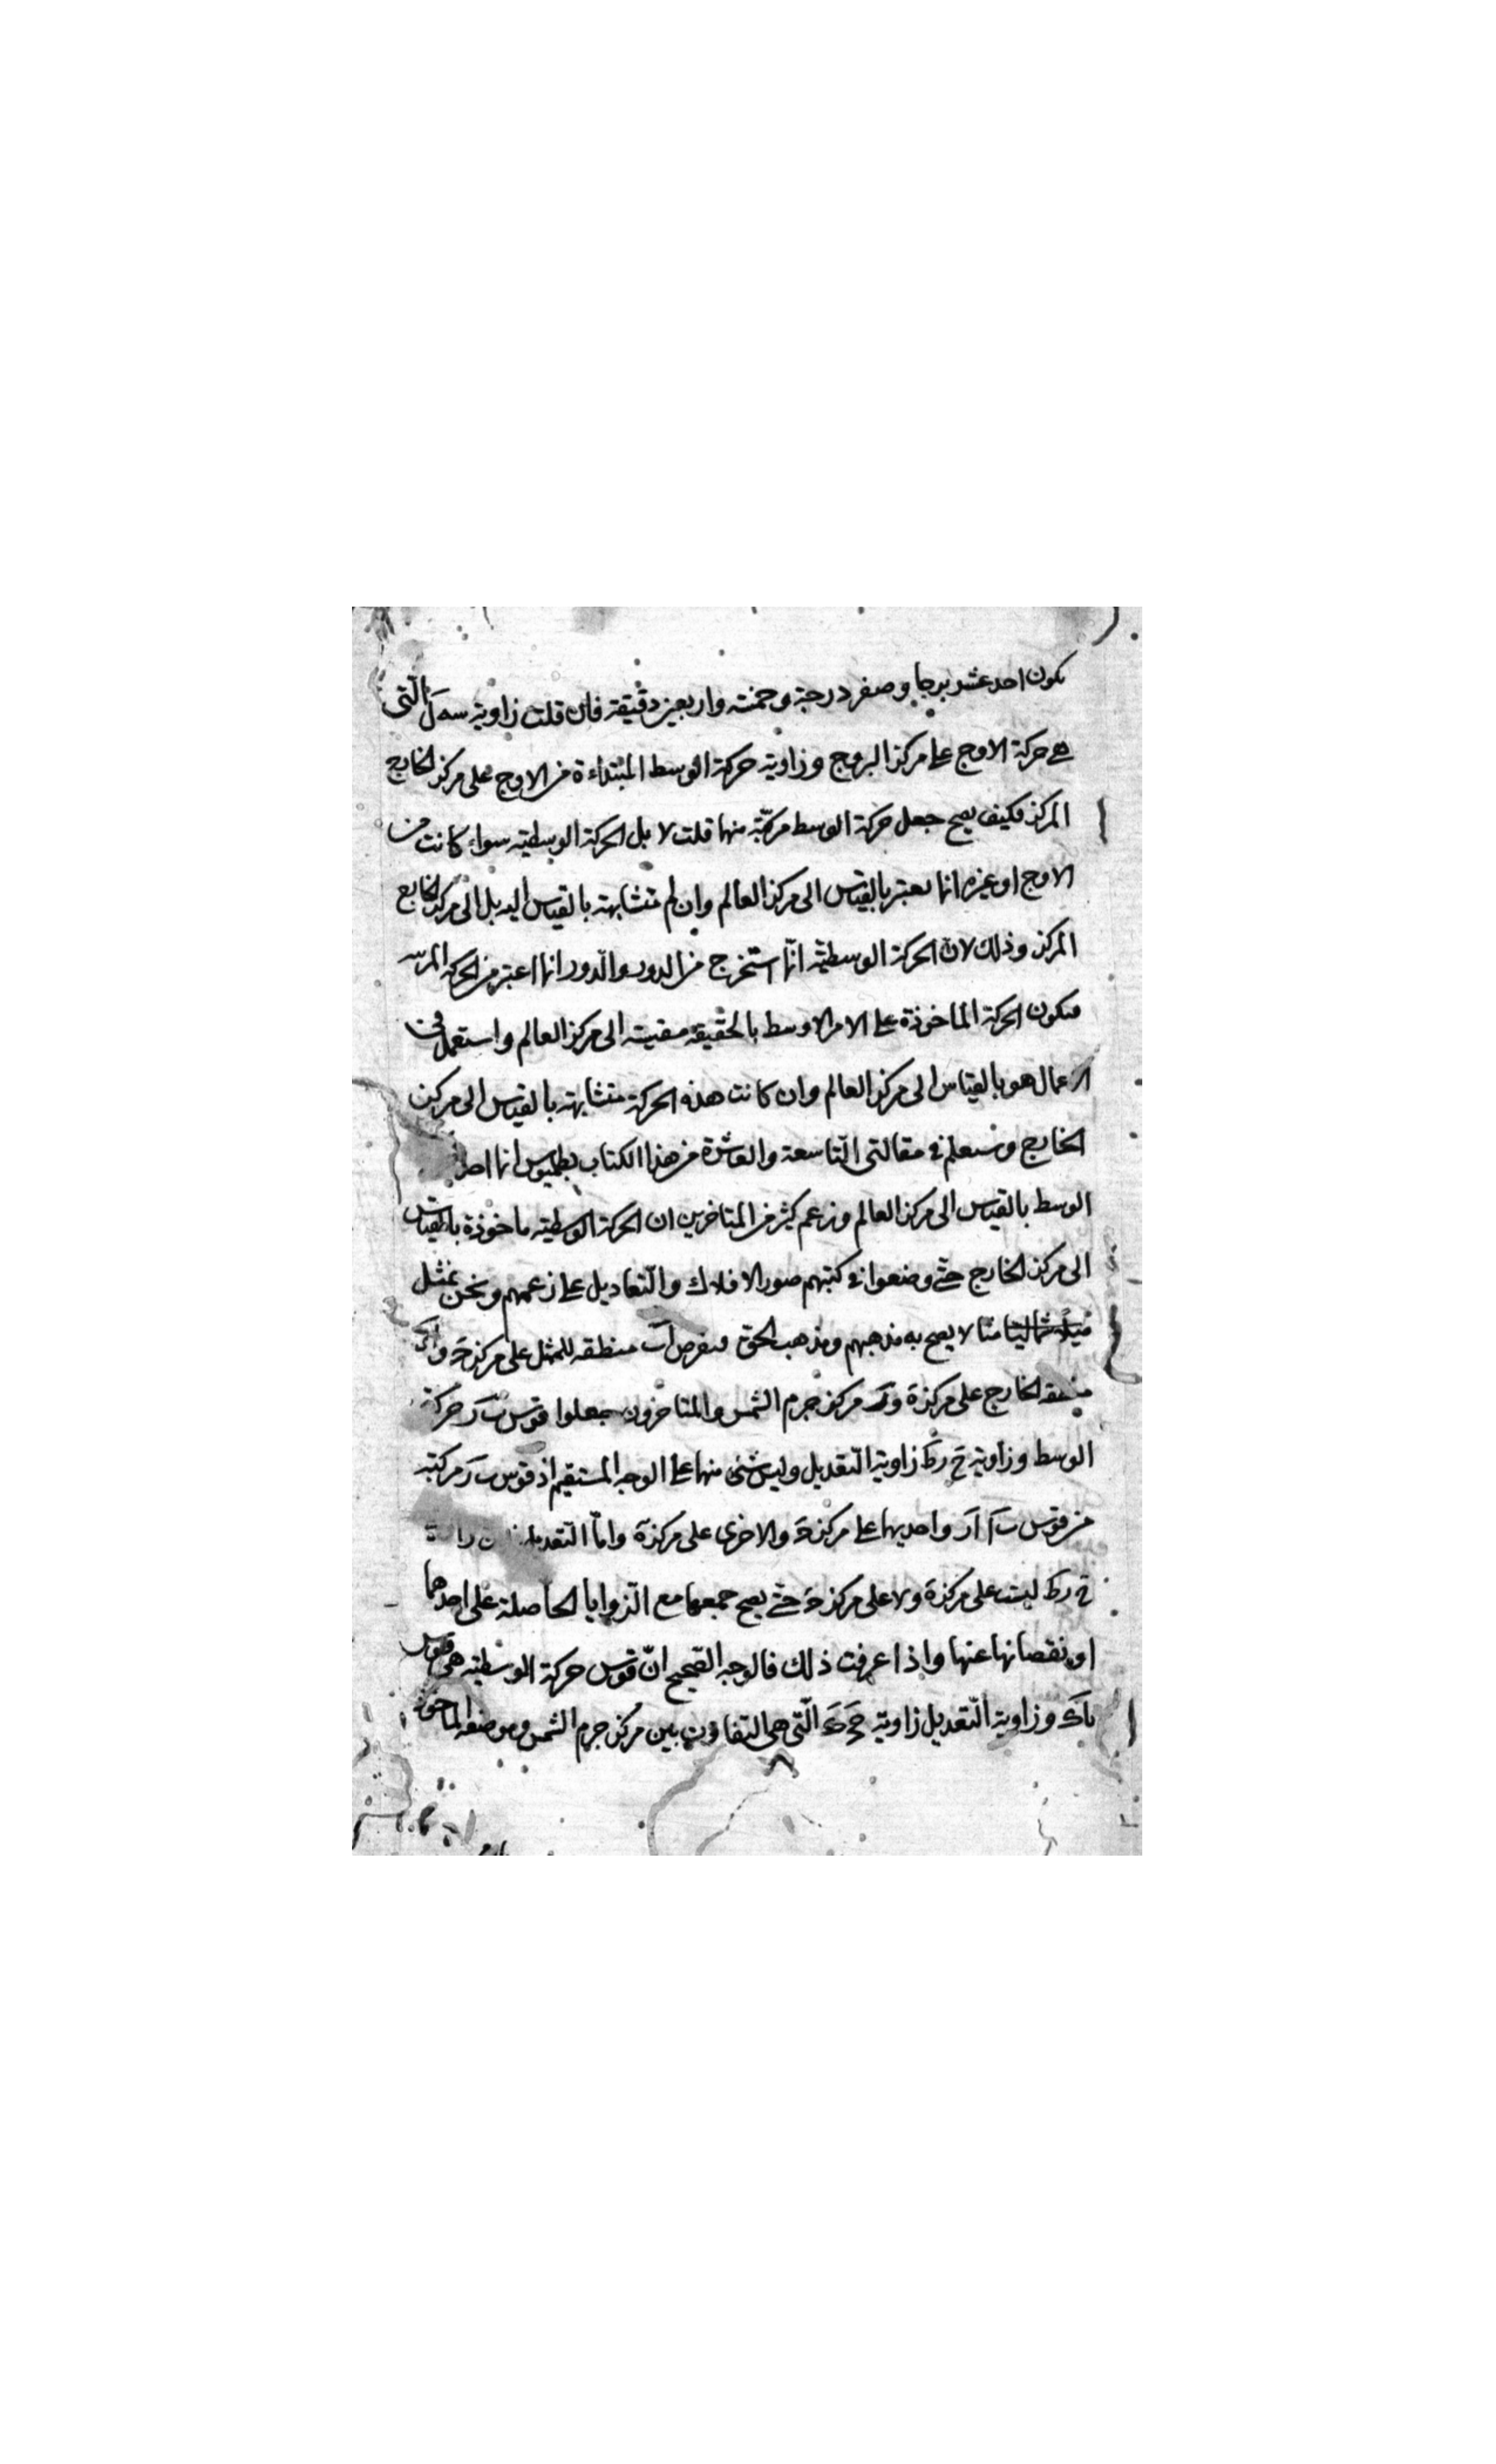 يكون احد عشر برجا وصفر درجة وخمسة واربعين دقيقة فان قلت زاوية التي
هي حركة الاوج على مركز البروج وزاوية حركة الوسط المبتداءة من الاوج على مركز الخارج
المركز فكيف يصح جعل حركة الوسط مركبة منهما قلت لا بل الحركة الوسطية سواء كانت من
الاوج او غيره انما يعتبر بالقياس الى مركز العالم وان لم تتشابه بالقياس اليه بل الى مركز الخارج
المركز وذلك لان الحركة الوسطية انما استخرج من الدور والدور انما اعتبر من الحركة
فيكون الحركة الماخوذة على الامر الاوسط بالحقيقة مقيسة الى مركز العالم واستعمل في
الاعمال هو بالقياس الى مركز العالم وان كانت هذه الحركة متشابهة بالقياس الى مركز
الخارج وستعلم في مقالتي التاسعة والعاشرة من هذا الكتاب بطلميوس انما
الوسط بالقياس الى مركز العالم وزعم كثير من المتاخرين ان الحركة الوسطية ماخوذة بالقياس
الى مركز الخارج حتى وضعوا في كتبهم صور الافلاك والتعاديل على زعمهم ونحن نمثل
مثالا لا يصح به مذهبهم ومذهب الحق فنفرض اب منطقة للممثل على مركز
منطقة الخارج على مركز ه و ر مركز جرم الشمس والمتاخرون جعلوا قوس ب ر حركة
الوسط وزاوية ح ر ط زاوية التعديل وليس شئ منها على الوجه المستقيم اذ قوس ب ر مركبة
من قوس ب ا ا ر واحديهما على مركز والاخرى على مركز ه واما التعديل
ح ر ط ليست على مركز ه ولا على مركز حتى يصح جمعها مع الزوايا الحاصلة على احدهما
او نقصانها عنها واذا عرفت ذلك فالوجه الصحيح ان قوس حركة الوسطية هي قوس
وزاوية التعديل زاوية التي هي التفاوت بين مركز جرم الشمس وموضعه الماخوذ